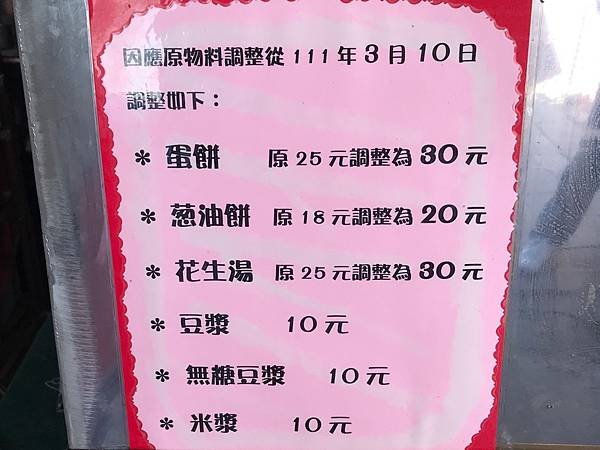 因應原物料調整從111年3月10日
調整如下：
＊ 蛋餅 原25元調整為30元
＊ 葱油餅 原18元調整為20元
＊ 花生湯 原25元調整為30元
＊ 豆漿 10元
＊ 無糖豆漿 10元
＊ 米漿 10元